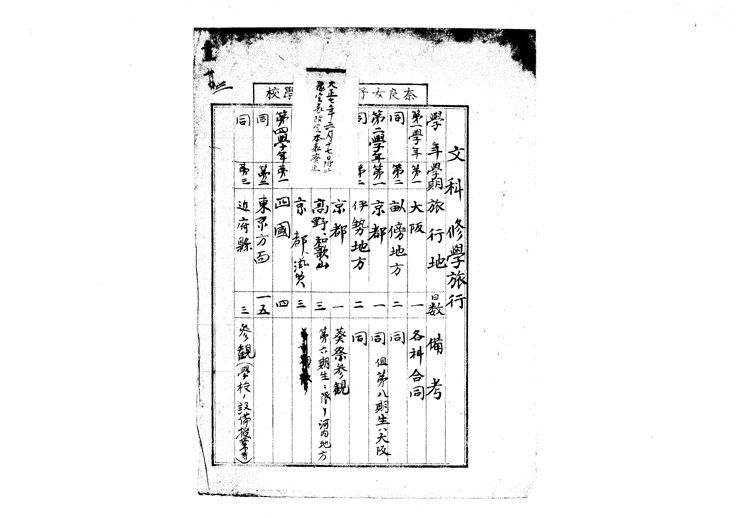 奈良女子 學校
大正七年二月十七日
文科修學旅行
學年 學期 旅行地 日数 備考
第一學年 第一 大阪 一 各科合同
同 第二 畝傍地方 二 同
第二學年 第一 京都 一 同 但第八期生ハ大阪
同 第二 伊勢地方 二 同
京都 一 葵祭参観
高野和歌山 三 第六期生ニ限リ河内地方
京都、滋賀 三
第四學年 第一 四國 四
同 第二 東京方面 一五
同 第三 近府縣 三 参観(學校ノ設備授業等)